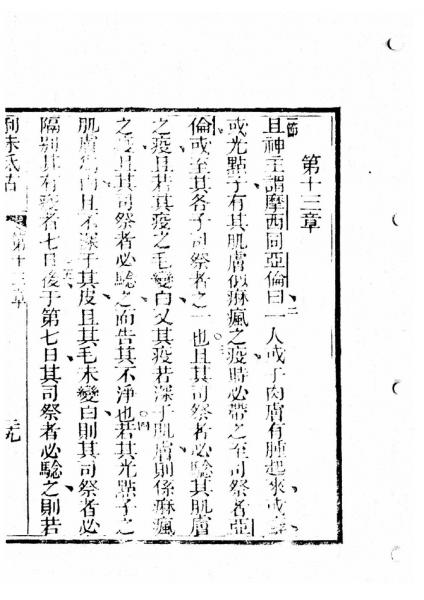 第十三章
節
且神主謂摩西同亞倫曰一人或于肉膚有腫起來或
或光點于有其肌膚似痳瘋之疫時必帶之至司祭者亞
倫或至其各子司祭者之一也且其司祭者必騐其肌膚
之疫且若其疫之毛變白又其疫若深于肌膚則係痳瘋
之疫且其司祭者必騐之而告其不淨也若其光點于之
肌膚為白且不深于其皮且其毛未變白則其司祭者必
隔別其有疫者七日後于第七日其司祭者必騐之則若
利未氏古 第十三章